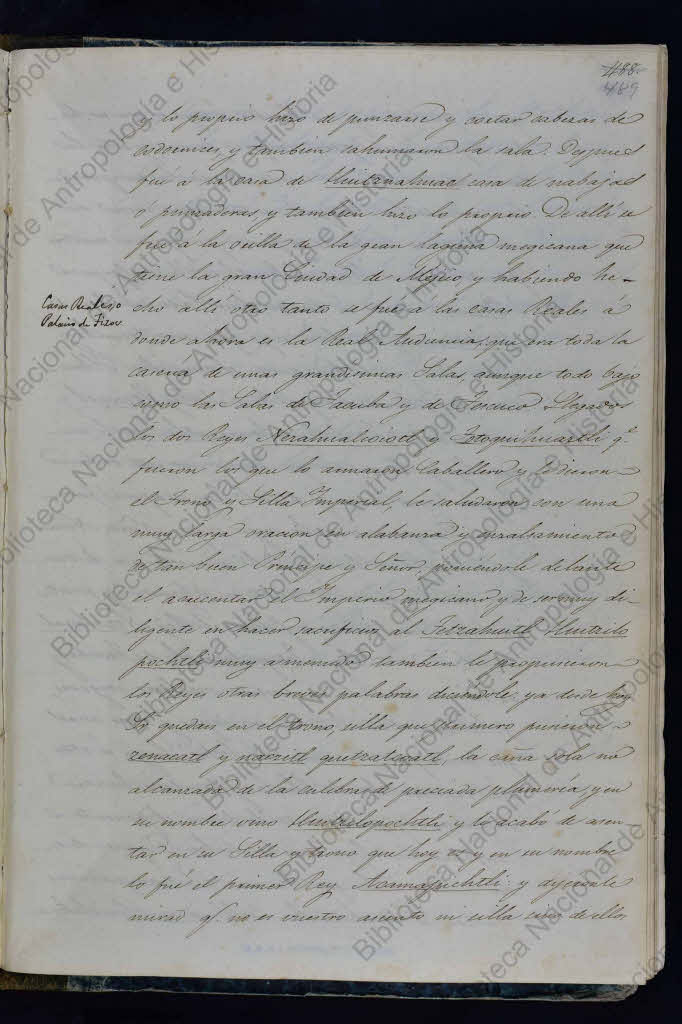 488
489
y lo proprio hizo de punzarse y cortar cabezas de
codornices, y tambien sahumaron la sala. Despues
fué á la casa de Huitznahuac casa de nabajas
o punzadores, y tambien hizo lo proprio. De allí se
fué á la orilla de la gran laguna megicana que
tiene la gran Ciudad de Mejico y habiendo he-
cho alli otro tanto se fué a las casas Reales á
Casas Reales o
Palacio de
donde ahora es la Real Audiencia, que era toda la
caseria de unas grandisimas Salas, aunque todo bajo
como las Salas de Tacuba y de Tescuco. Llegados
los dos Reyes Nezahualcoiotl y q.e
fueron los que lo armaron Caballero y le dieron
el Trono y Silla Imperial, le saludaron con una
muy larga oracion en alabanza y ensalsamiento
de tan buen Principe y Señor, poniéndole delante
el acrecentar el Imperio megicano, y de ser muy di-
ligente en hacer sacrificios al Tetzahuitl Huitzilo
pochtli muy amenudo tambien le propusieron
los Reyes otras breves palabras diciendole: ya desde hoy
Sr. quedais en el trono, silla que primero pusieron
zenacatl y nacxitl quetzalcoatl, la caña sola no
alcanzada de la culebra de preciada plumeria, y en
su nombre vino Huitzilopochtli y lo acabó de asen-
tar en su Silla y trono que hoy es y en su nombre
lo fué el primer Rey Acamapichtli: y dijeronle
mirad q. no es vuestro asiento ni silla sino de ellos